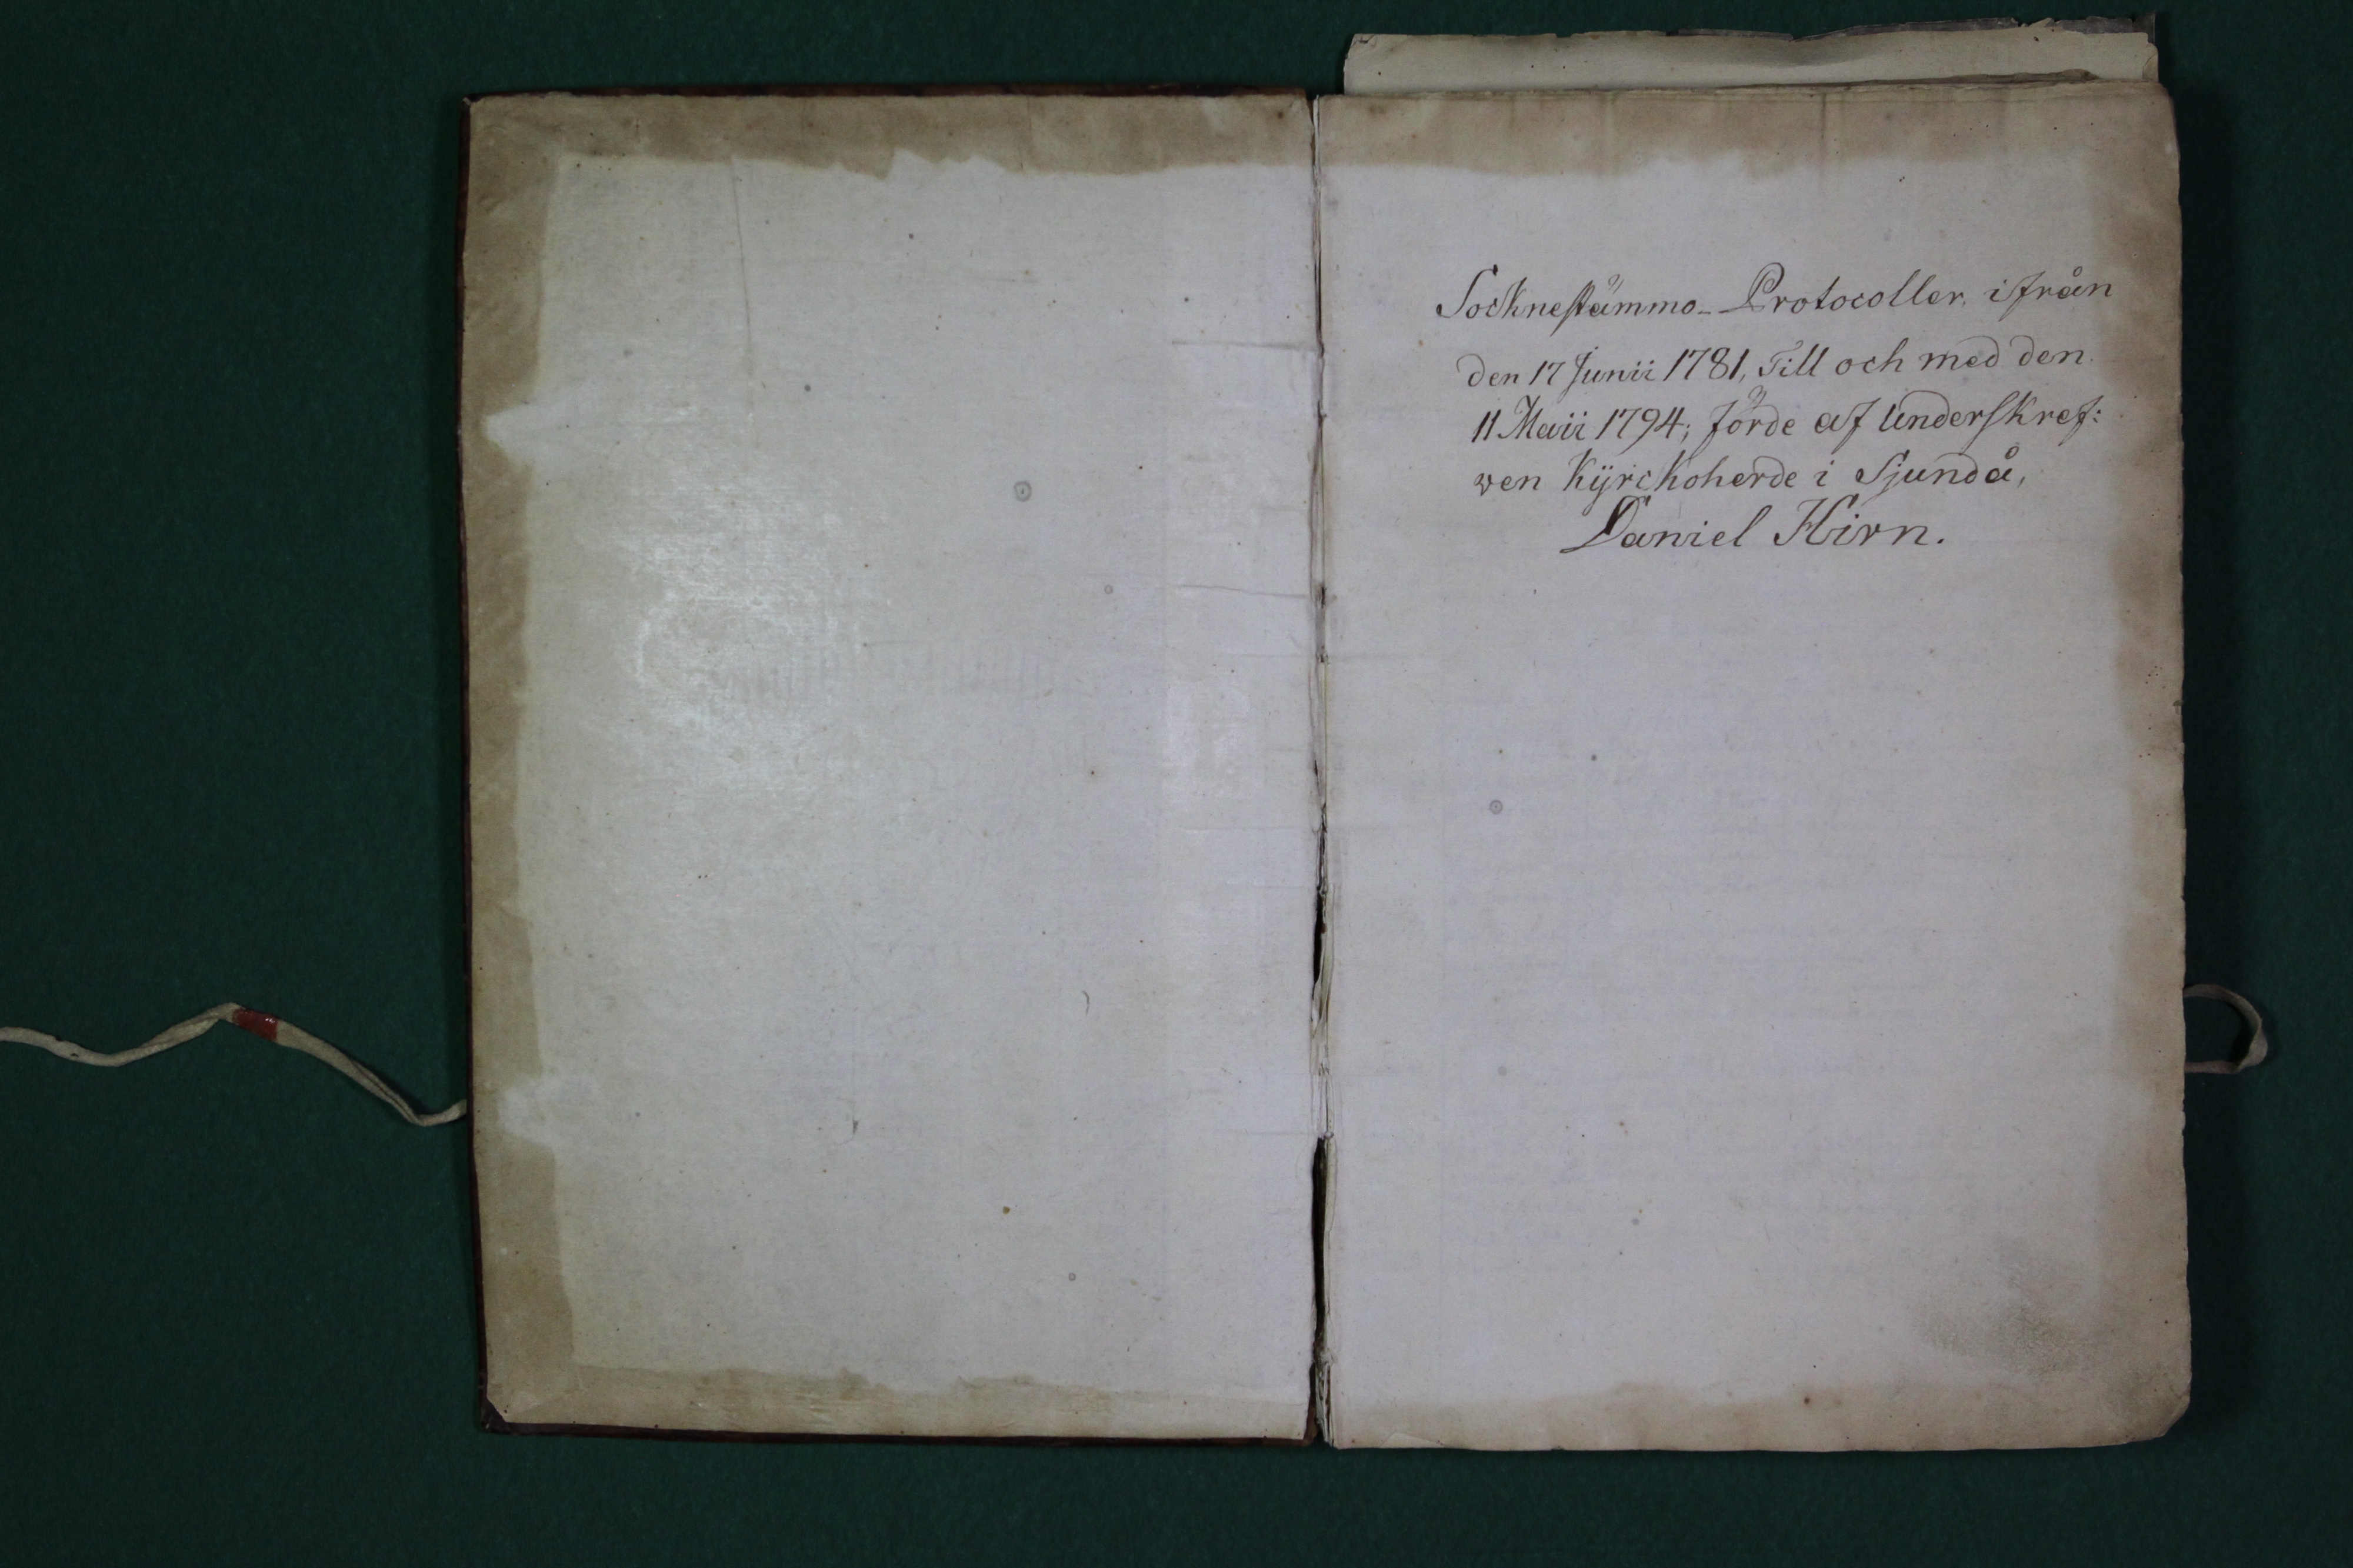 Socknestämmo-Protocoller, ifrån
den 17 Junii 1781, Till och med den
11 Maii 1794; förde af Underskref:
wen Kÿrckoherde i Sjundå,
Daniel Hirn.